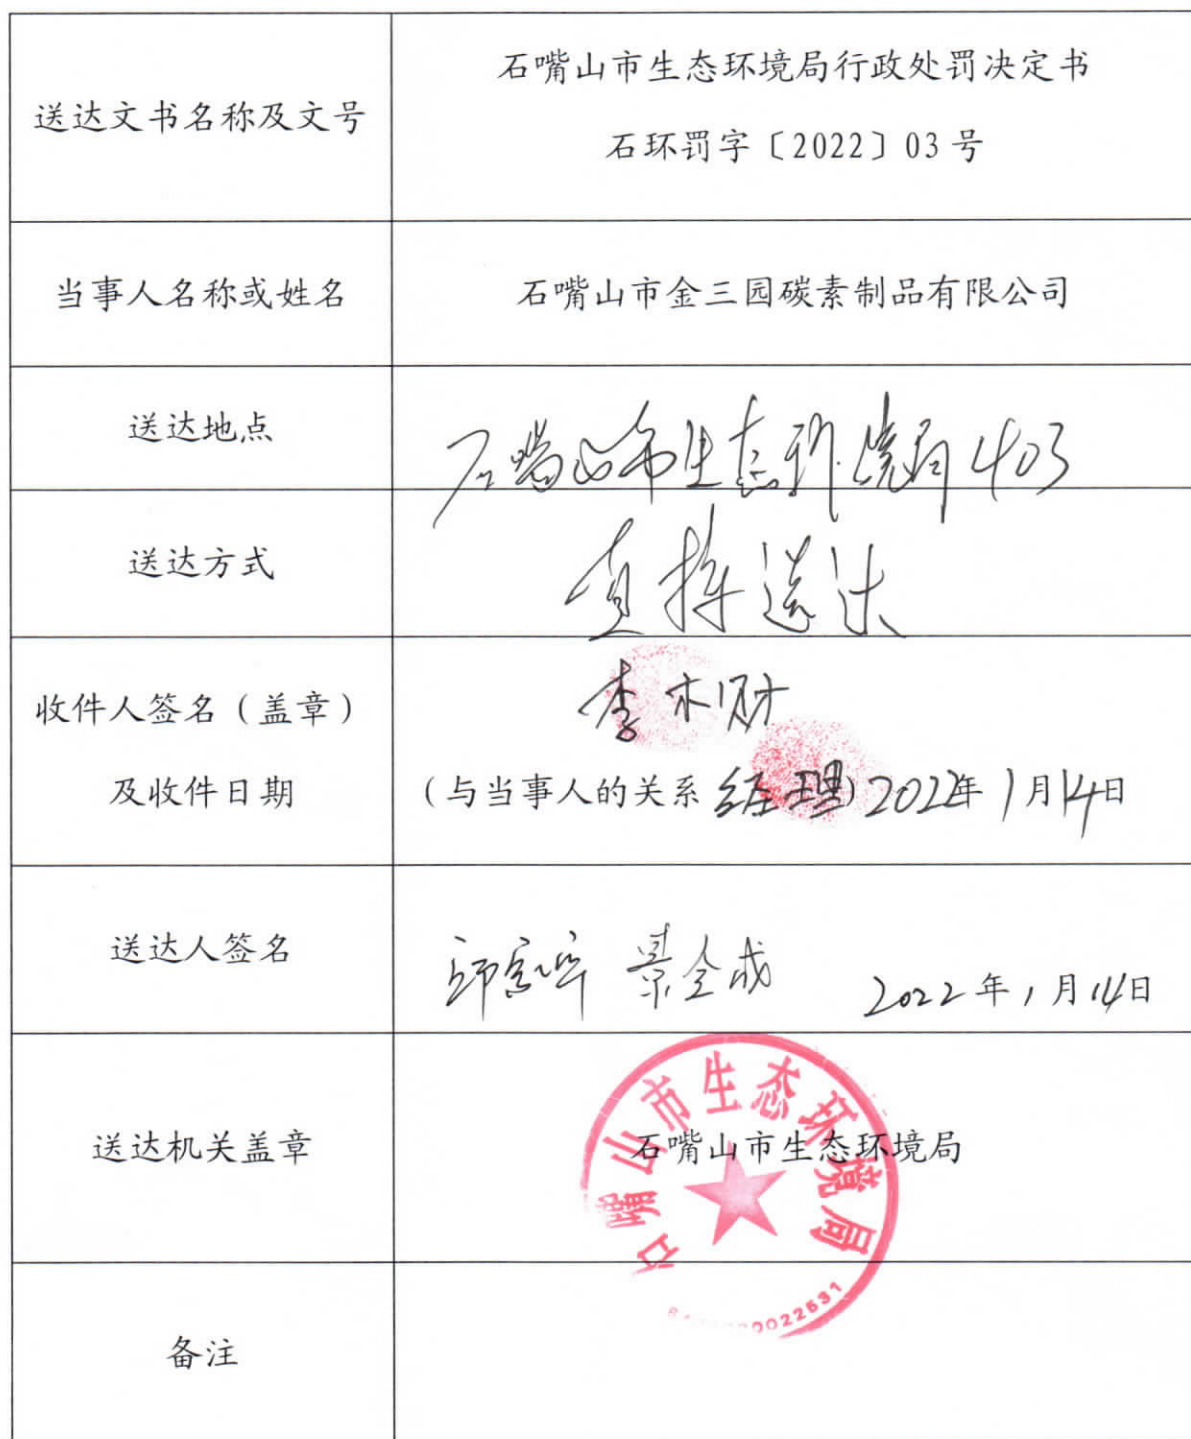 石嘴山市生态环境局行政处罚决定书
送达文书名称及文号
石环罚字〔2022〕03号
当事人名称或姓名
石嘴山市金三园碳素制品有限公司
送达地点
石嘴山市生态环境局403
送达方式
直接送达
收件人签名（盖章）
李木财
及收件日期
（与当事人的关系 经理）2022年1月14日
送达人签名
景全成 2022年1月14日
送达机关盖章
石嘴山市生态环境局
石嘴山市生态环境局
备注